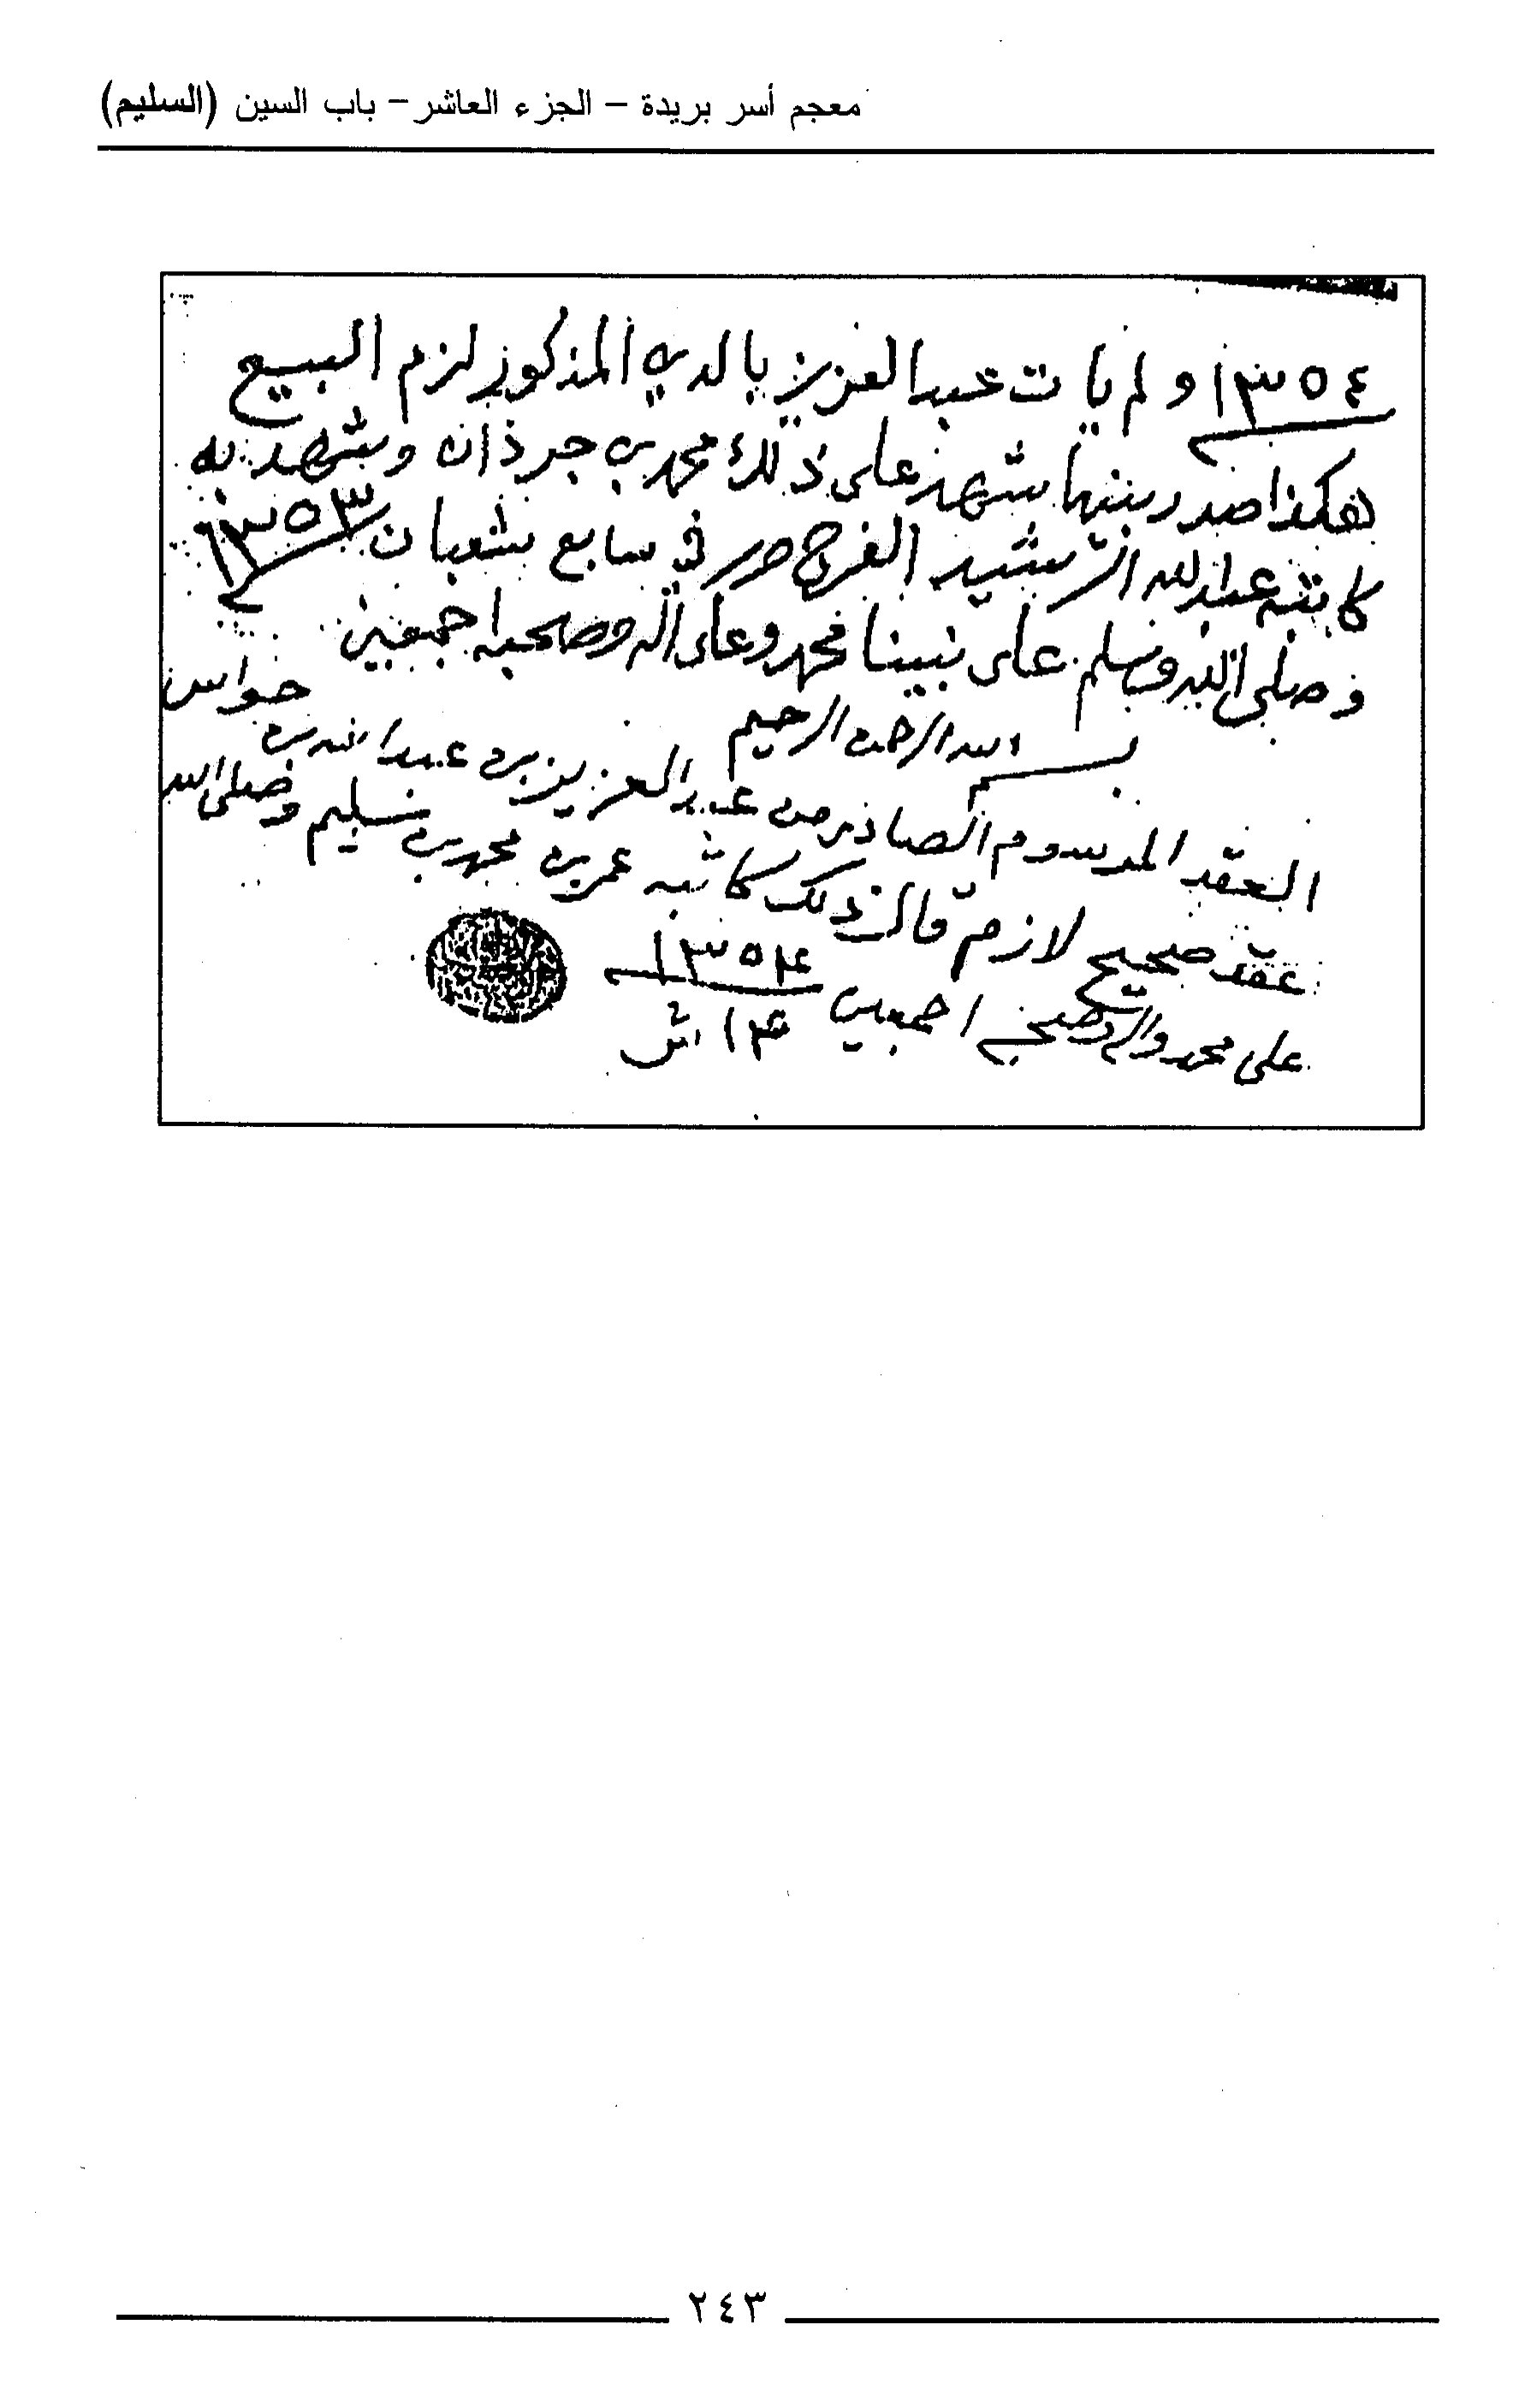 معجم أسر بريدة – الجزء العاشر – باب السين (السليم)
١٣٥٤ و لم يات عبدالعزيز بالدين المذكور لزم البيع
هكذا صدر بينهما شهد على ذلك محمد بن جرذان وشهد به
كاتبه عبدالله الرشيد الفرج حرر في سابع شعبان ١٣٥٣
وصلى الله وسلم على نبينا محمد وعلى آله وصحبه اجمعين
بسم الله الرحمن الرحيم
العقد المرسوم الصادر من عبدالعزيز بن عبدالله بن حواس
عقد صحيح لازم قال ذلك كاتبه عمر بن محمد بن سليم وصلى الله
على محمد وآله وصحبه اجمعين ١٣٥٤
١٤
٢٤٣